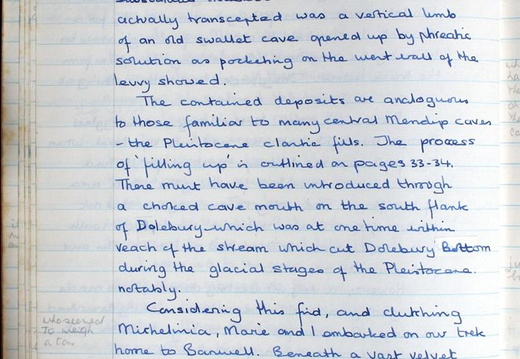 actually transcepted was a vertical limb
of an old swallet cave opened up by phreatic
solution as pocketing on the west wall of the
levvy showed.
The contained deposits are analoguous
to those familiar to many central Mendip caves
- the Pleistocene clastic fills. The process
of 'filling up' is outlined on pages 33-34.
There must have been introduced through
a choked cave mouth on the south flank
of Dolebury which was at one time within
reach of the stream which cut Dolebury Bottom
during the glacial stages of the Pleistocene.
notably.
Considering this find, and clutching
Michelinia, Marie and I embarked on our trek
home to Banwell. Beneath a vast velvet
who seemed
To weigh
a ton